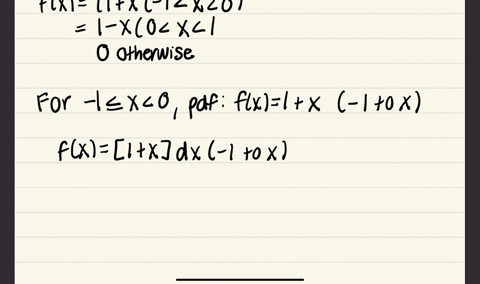 f(x) = (1+x (-1<x<0)
= 1-x(0<x<1
0 otherwise
For -1≤x<0, pdf: f(x)=1+x (-1 to x)
f(x)=[1+x]dx(-1 to x)